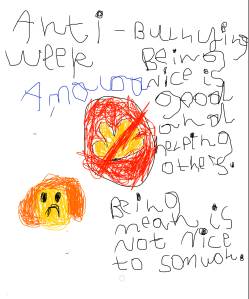 Anti-Bullying
Week
Being
nice is
good
and
helping
others.
Being
mean is
not nice
to somwon.